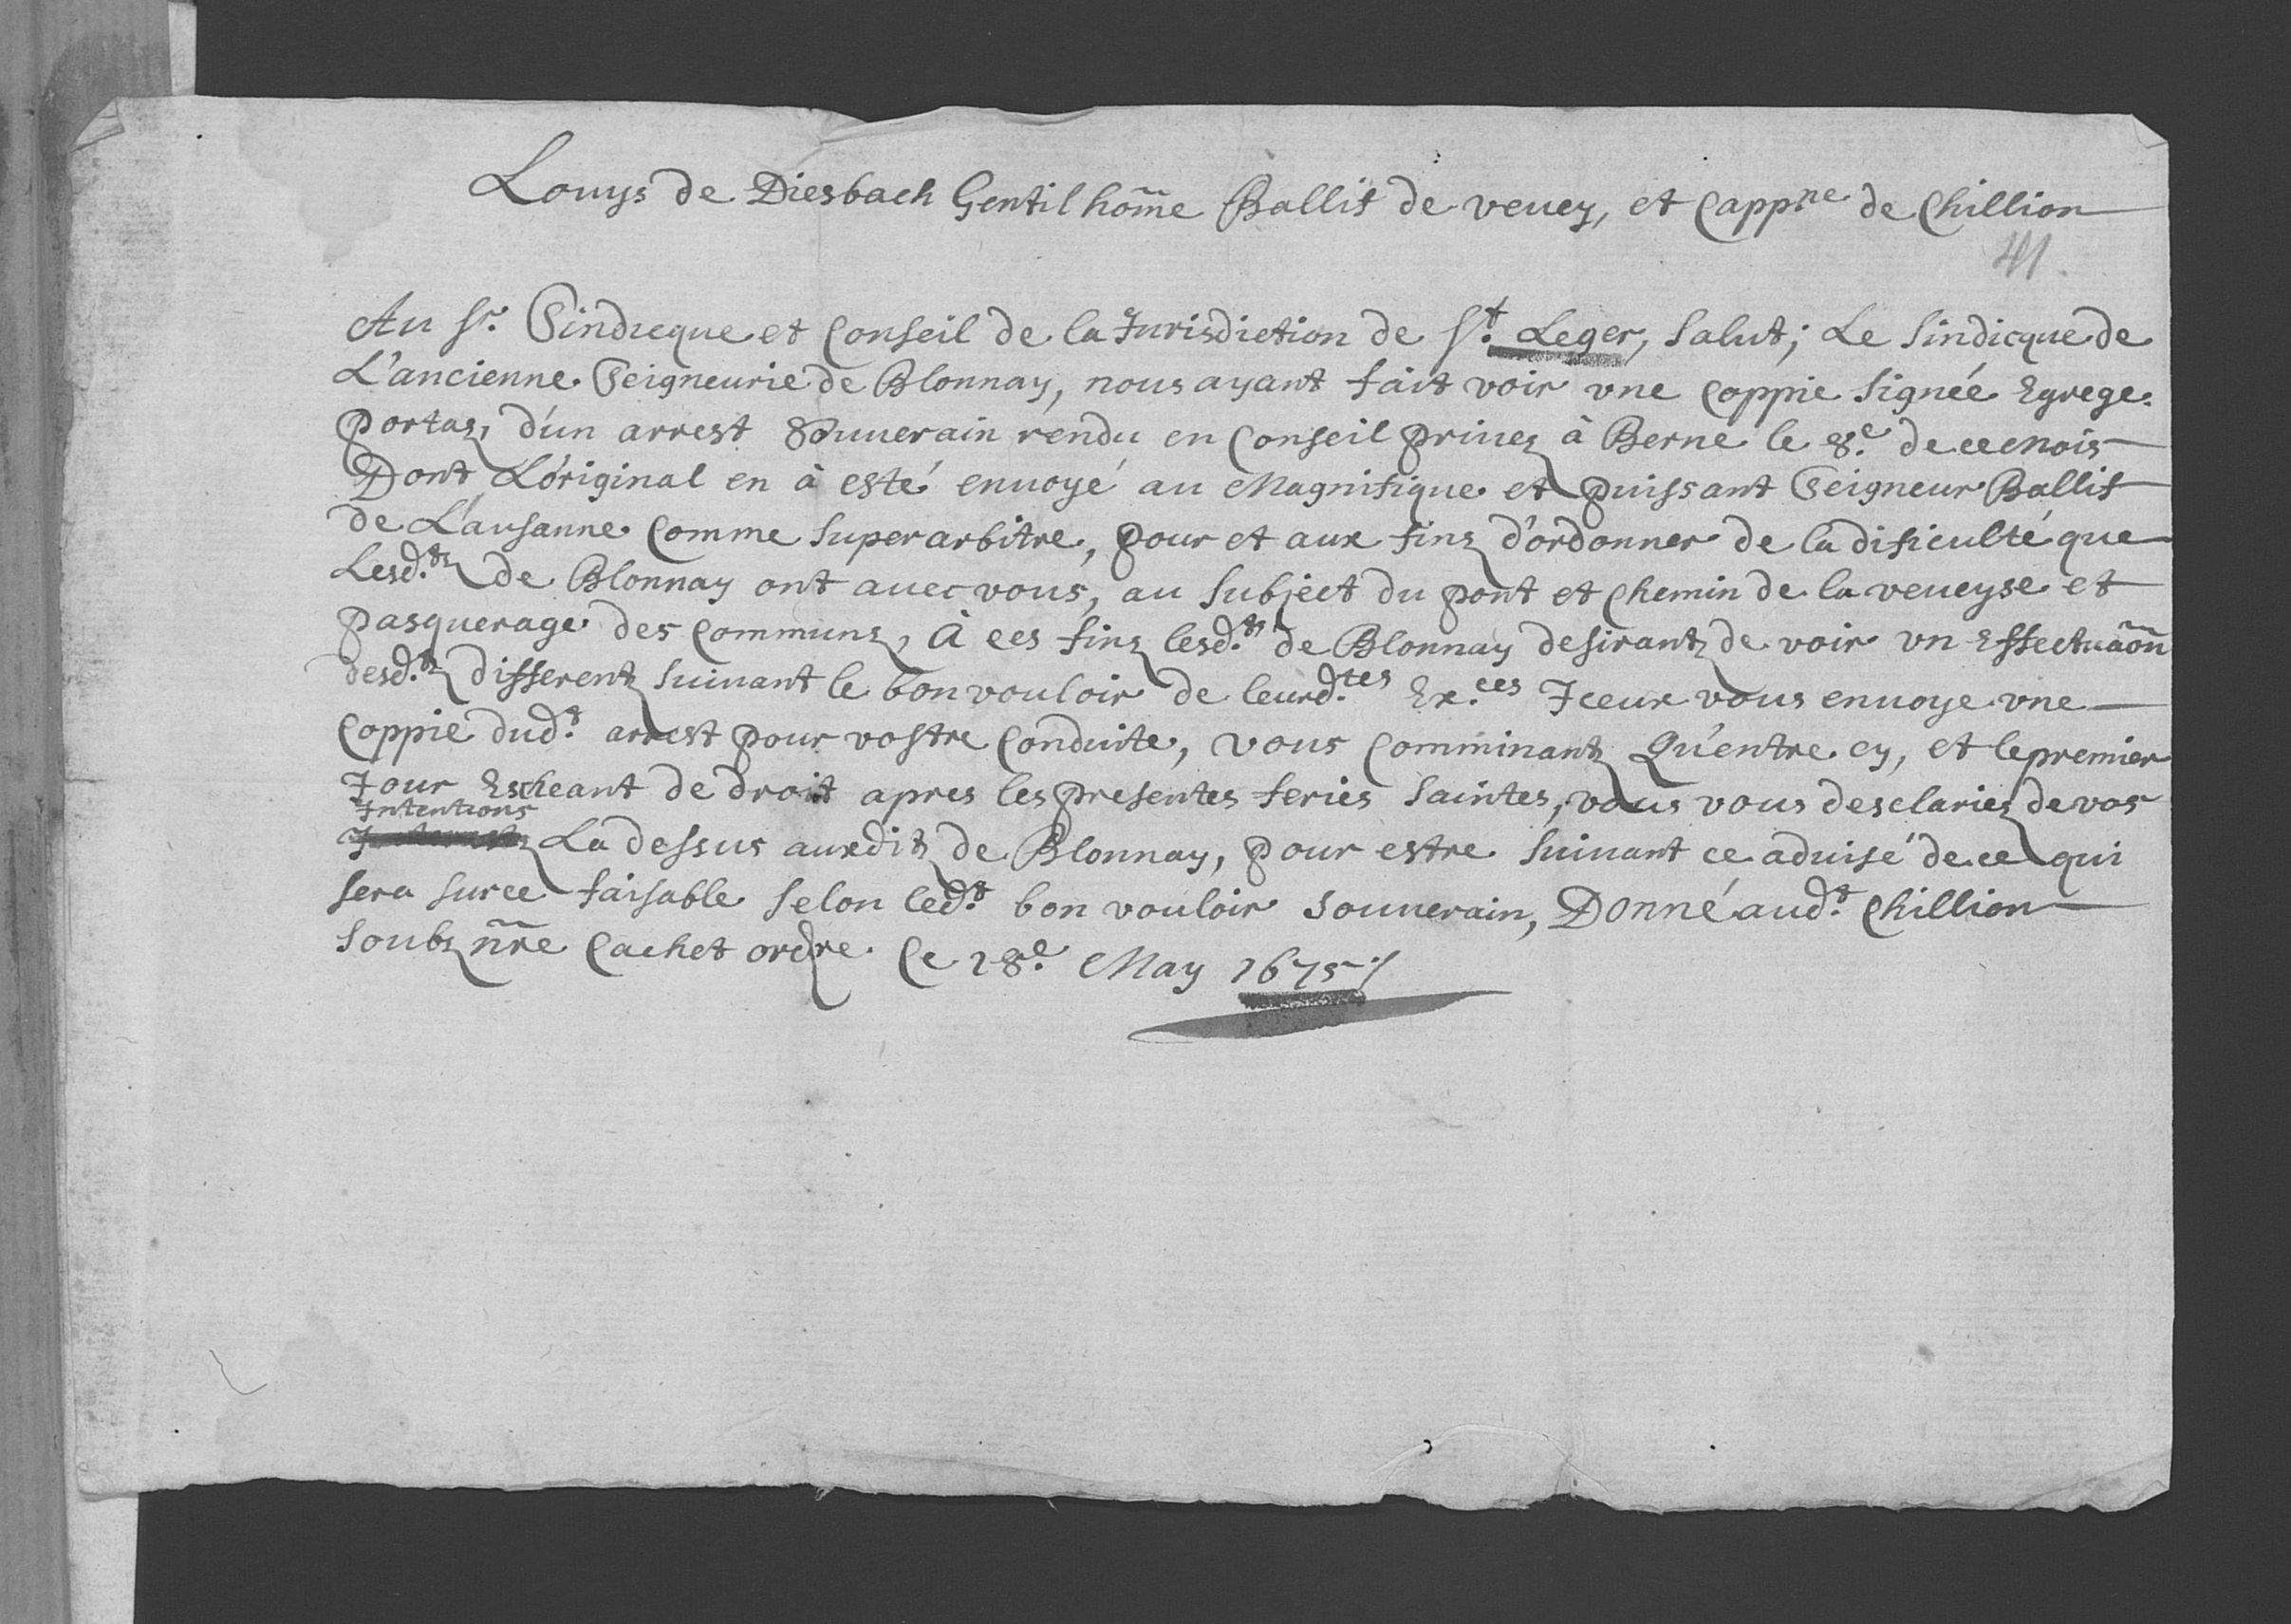 Louys de Diesbach Gentilhom̃e Ballif de veuey, et Cappne de Chillion
41.
Au Sr. Sindicque et Conseil de la Jurisdiction de St. Leger, salut; Le sindicque de
L'ancienne Seigneurie de Blonnay, nous ayant fait voir vne Coppie signée Egrege
portaz, d'un arrest Souuerain rendu en Conseil priuez à Berne le 8e. de ce mois
Dont L'original en à esté enuoyé au Magnifique et puissant Seigneur Ballif
de L'ausanne Comme superarbitre, pour et aux fins d'ordonner de la dificulté que
Lesd.ts de Blonnay ont auec vous, au subject du pont et Chemin de la veueyse et
pasquerage des Communs, à ces fins lesd.ts de Blonnay desirantz de voir vn Effectuaõn
desd.ts differentz suiuant le bon vouloir de leursd.tes Ex.ces Jceux vous enuoye vne
Coppie dud.t arrest pour vostre Conduite, vous Comminant Qu'entre cy, et le premier
Jour Escheant de droit apres les presentes feries saintes, vous vous desclariez de vos
Intentions
La dessus auxditz de Blonnay, pour estre suiuant ce aduisé de ce qui
sera sur ce faisable selon led.t bon vouloir souuerain, Donné aud.t Chillion
soubz nr̃e Cachet ordre. Ce 18e. May 1675 ./